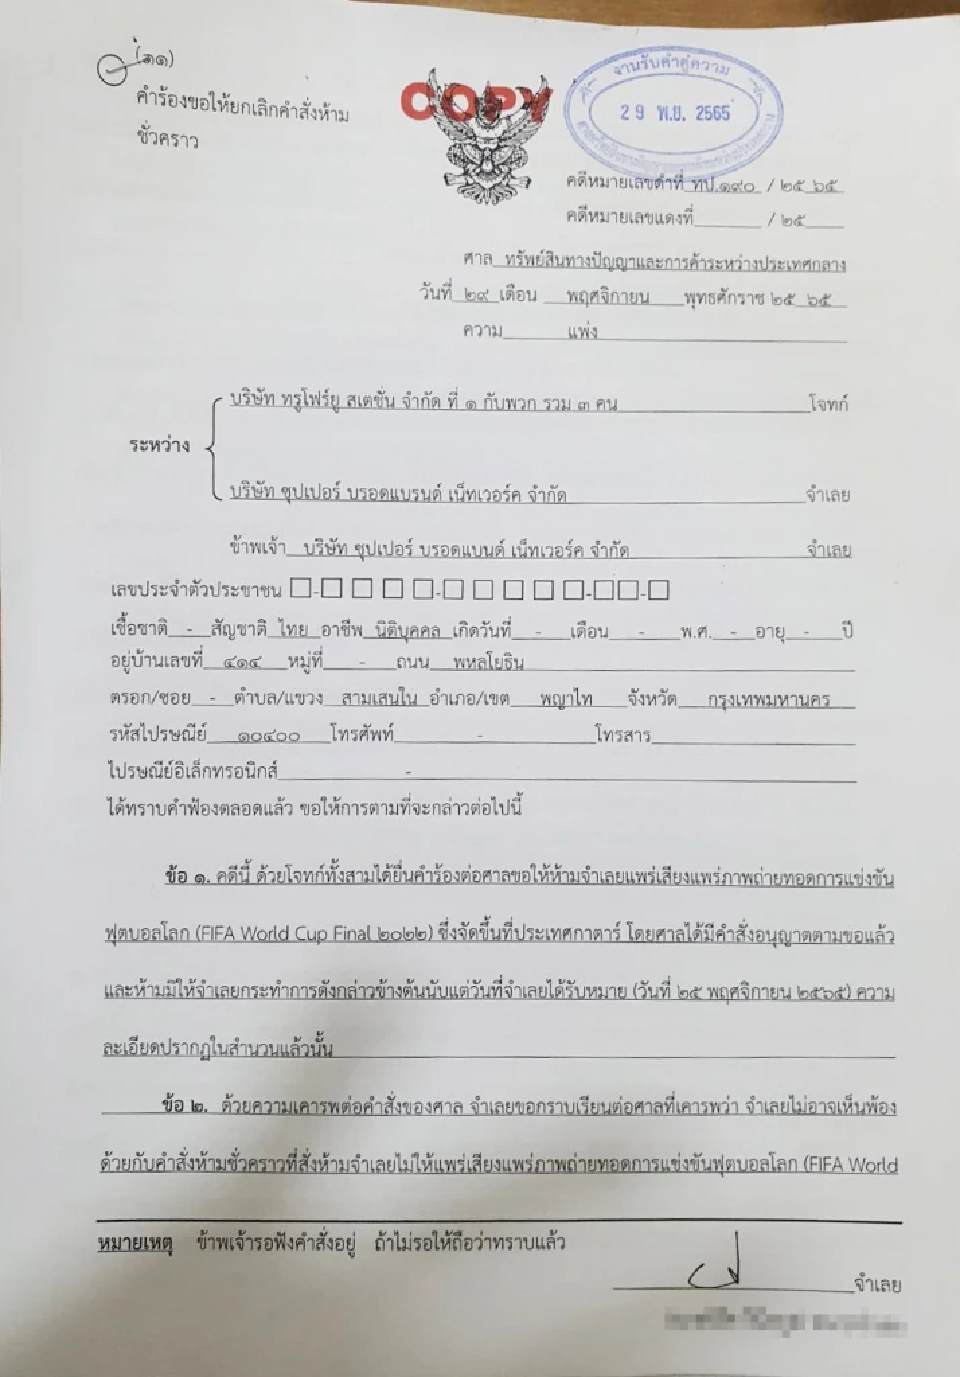 (๑๑)
คำร้องขอให้ยกเลิกคำสั่งห้าม
ชั่วคราว
COPY
งานรับคำคู่ความ
29 พ.ย. 2565
คดีหมายเลขดำที่ ทป.๑๙๐ / ๒๕ ๖๕
คดีหมายเลขแดงที่ / ๒๕
ศาล ทรัพย์สินทางปัญญาและการค้าระหว่างประเทศกลาง
วันที่ ๒๙ เดือน พฤศจิกายน พุทธศักราช ๒๕ ๖๕
ความ แพ่ง
บริษัท ทรูโฟร์ยู สเตชั่น จำกัด ที่ ๑ กับพวก รวม ๓ คน โจทก์
ระหว่าง
บริษัท ซุปเปอร์ บรอดแบรนด์ เน็ทเวอร์ค จำกัด จำเลย
ข้าพเจ้า บริษัท ซุปเปอร์ บรอดแบนด์ เน็ทเวอร์ค จำกัด จำเลย
เลขประจำตัวประชาชน
เชื้อชาติ - สัญชาติ ไทย อาชีพ นิติบุคคล เกิดวันที่ - เดือน - พ.ศ. - อายุ - ปี
อยู่บ้านเลขที่ ๔๑๔ หมู่ที่ - ถนน พหลโยธิน
ตรอก/ซอย - ตำบล/แขวง สามเสนใน อำเภอ/เขต พญาไท จังหวัด กรุงเทพมหานคร
รหัสไปรษณีย์ ๑๐๔๐๐ โทรศัพท์ - โทรสาร
ไปรษณีย์อิเล็กทรอนิกส์ -
ได้ทราบคำฟ้องตลอดแล้ว ขอให้การตามที่จะกล่าวต่อไปนี้
ข้อ ๑. คดีนี้ ด้วยโจทก์ทั้งสามได้ยื่นคำร้องต่อศาลขอให้ห้ามจำเลยแพร่เสียงแพร่ภาพถ่ายทอดการแข่งขัน
ฟุตบอลโลก (FIFA World Cup Final ๒๐๒๒) ซึ่งจัดขึ้นที่ประเทศกาตาร์ โดยศาลได้มีคำสั่งอนุญาตตามขอแล้ว
และห้ามมิให้จำเลยกระทำการดังกล่าวข้างต้นนับแต่วันที่จำเลยได้รับหมาย (วันที่ ๒๕ พฤศจิกายน ๒๕๖๕) ความ
ละเอียดปรากฏในสำนวนแล้วนั้น
ข้อ ๒. ด้วยความเคารพต่อคำสั่งของศาล จำเลยขอกราบเรียนต่อศาลที่เคารพว่า จำเลยไม่อาจเห็นพ้อง
ด้วยกับคำสั่งห้ามชั่วคราวที่สั่งห้ามจำเลยไม่ให้แพร่เสียงแพร่ภาพถ่ายทอดการแข่งขันฟุตบอลโลก (FIFA World
หมายเหตุ ข้าพเจ้ารอฟังคำสั่งอยู่ ถ้าไม่รอให้ถือว่าทราบแล้ว
จำเลย